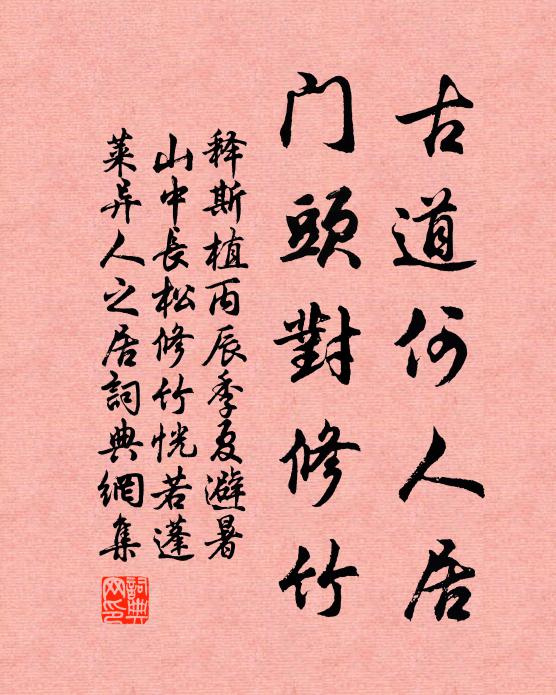 古道何人居
門頭對修竹
释斯植丙辰季夏避暑
山中長松修竹恍若蓬
莱异人之居詞典網集
詞典網印